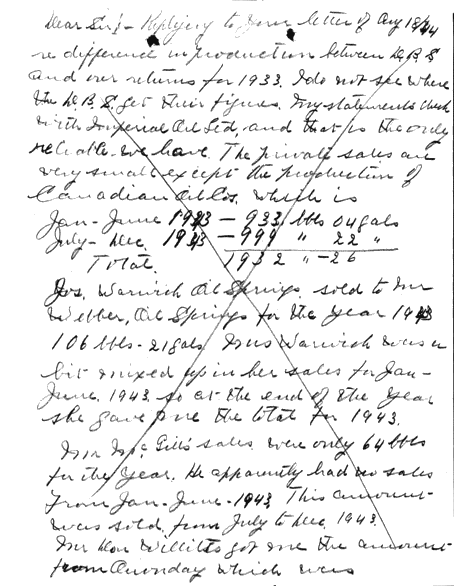 Dear Sir:- Replying to your letter of Aug 18/44
re difference in production between D.B.S
and our returns for 1933. I do not see where
the D.B.S. get their figures. My statements check
with Imperial Oil Ltd, and that is the only
reliable we have. The private sales are
very small except the production of
Canadian Oil Cos. which is
Jan - June 1943 - 933 bbls 04 gals
July - Dec. 1943 - 999 " 22 "
Total. 1932 " - 26
Jos. Warwick Oil Springs, sold to Mr
Webber, Oil Springs for the Year 1943
106 bbls - 21 gals. Mrs Warwick was a
bit mixed up in her sales for Jan -
June, 1943 so at the end of the Year
she gave me the total for 1943.
Mr McGill's sales were only 64 bbls
for the Year. He apparently had no sales
from Jan. - June - 1943. This amount
was sold, from July to Dec, 1943.
Mr Don Willitts got me the amount
from which was